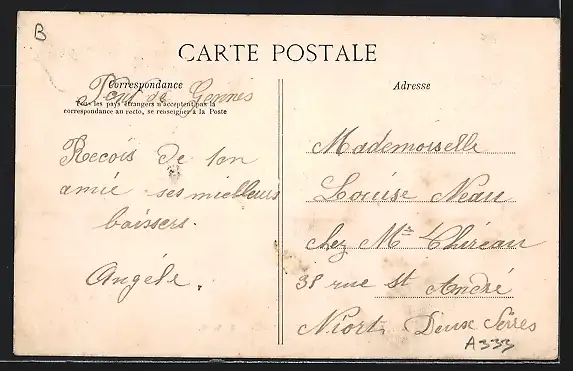 B
CARTE POSTALE
Correspondance
Pont de Gennes
Tous les pays étrangers n'acceptent pas la
correspondance au recto, se renseigner à la Poste
Recois de ton
amie ses mielleurs
baissers.
Angéle.
Adresse
Mademoiselle
Louise Neau
chez Mr Chireau
38 rue St André
Niort Deux Sèvres
A333